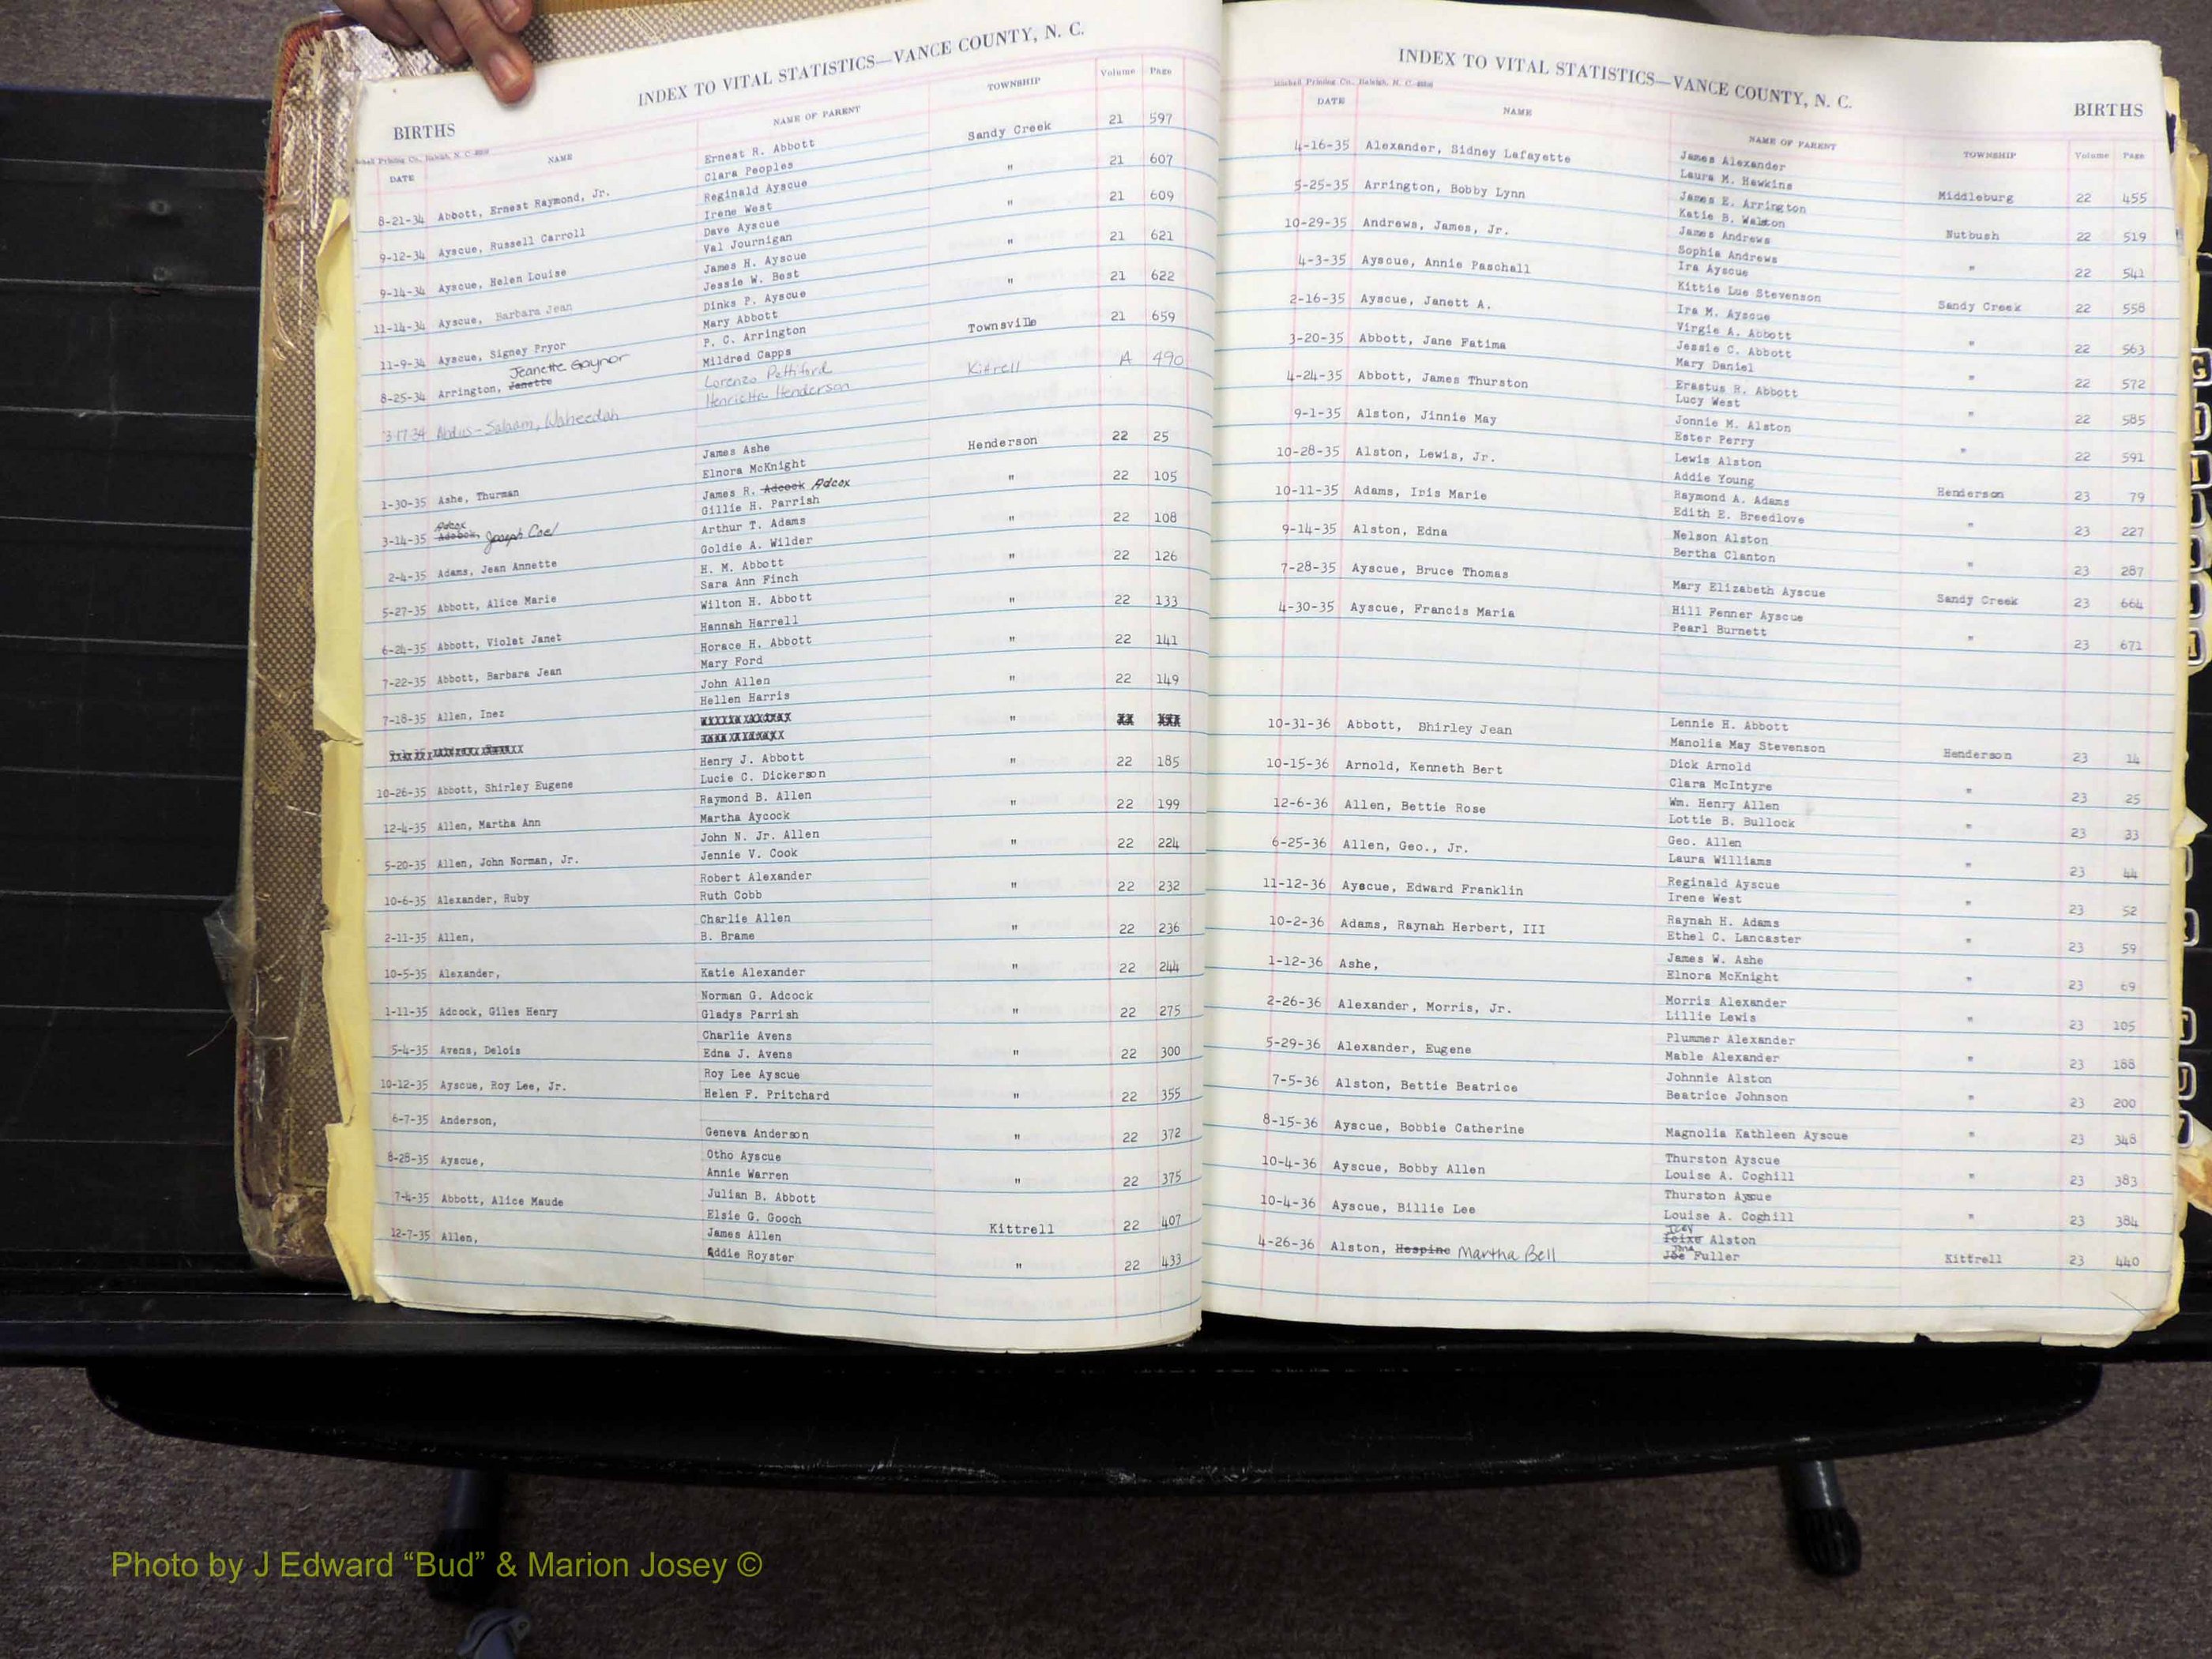 INDEX TO VITAL STATISTICS—VANCE COUNTY, N. C.
BIRTHS
DATE NAME NAME OF PARENT TOWNSHIP Volume Page
8-21-34 Abbott, Ernest Raymond, Jr. Ernest R. Abbott Sandy Creek 21 597
Clara Peoples
9-12-34 Ayscue, Russell Carroll Reginald Ayscue " 21 607
Irene West
9-14-34 Ayscue, Helen Louise Dave Ayscue " 21 609
Val Journigan
11-14-34 Ayscue, Barbara Jean James H. Ayscue " 21 621
Jessie W. Best
11-9-34 Ayscue, Signey Pryor Dinks P. Ayscue " 21 622
Mary Abbott
Jeanette Gaynor
8-25-34 Arrington, Janette P. C. Arrington Townsville 21 659
Mildred Capps
3-17-34 Abdus-Salaam, Waheedah Lorenzo Pettiford Kittrell A 490
Henrietta Henderson
1-30-35 Ashe, Thurman James Ashe Henderson 22 25
Elnora McKnight
Adcox
3-14-35 Adcock, Joseph Coel James R. Adcock Adcox " 22 105
Gillie H. Parrish
2-4-35 Adams, Jean Annette Arthur T. Adams " 22 108
Goldie A. Wilder
5-27-35 Abbott, Alice Marie H. M. Abbott " 22 126
Sara Ann Finch
6-24-35 Abbott, Violet Janet Wilton H. Abbott " 22 133
Hannah Harrell
7-22-35 Abbott, Barbara Jean Horace H. Abbott " 22 141
Mary Ford
7-18-35 Allen, Inez John Allen " 22 149
Hellen Harris
"
10-26-35 Abbott, Shirley Eugene Henry J. Abbott " 22 185
Lucie C. Dickerson
12-4-35 Allen, Martha Ann Raymond B. Allen " 22 199
Martha Aycock
5-20-35 Allen, John Norman, Jr. John N. Jr. Allen " 22 224
Jennie V. Cook
10-6-35 Alexander, Ruby Robert Alexander " 22 232
Ruth Cobb
2-11-35 Allen, Charlie Allen " 22 236
B. Brame
10-5-35 Alexander, Katie Alexander " 22 244
1-11-35 Adcock, Giles Henry Norman G. Adcock " 22 275
Gladys Parrish
5-4-35 Avens, Delois Charlie Avens " 22 300
Edna J. Avens
10-12-35 Ayscue, Roy Lee, Jr. Roy Lee Ayscue " 22 355
Helen F. Pritchard
6-7-35 Anderson, Geneva Anderson " 22 372
8-28-35 Ayscue, Otho Ayscue " 22 375
Annie Warren
7-4-35 Abbott, Alice Maude Julian B. Abbott Kittrell 22 407
Elsie G. Gooch
12-7-35 Allen, James Allen " 22 433
Addie Royster
INDEX TO VITAL STATISTICS—VANCE COUNTY, N. C.
BIRTHS
Mitchell Printing Co., Raleigh, N. C.
DATE NAME NAME OF PARENT TOWNSHIP Volume Page
4-16-35 Alexander, Sidney Lafayette James Alexander Middleburg 22 455
Laura M. Hawkins
5-25-35 Arrington, Bobby Lynn James E. Arrington Nutbush 22 519
Katie B. Walston
10-29-35 Andrews, James, Jr. James Andrews " 22 541
Sophia Andrews
4-3-35 Ayscue, Annie Paschall Ira Ayscue Sandy Creek 22 558
Kittie Lue Stevenson
2-16-35 Ayscue, Janett A. Ira M. Ayscue " 22 563
Virgie A. Abbott
3-20-35 Abbott, Jane Fatima Jessie C. Abbott " 22 572
Mary Daniel
4-24-35 Abbott, James Thurston Erastus R. Abbott " 22 585
Lucy West
9-1-35 Alston, Jinnie May Jonnie M. Alston " 22 591
Ester Perry
10-28-35 Alston, Lewis, Jr. Lewis Alston Henderson 23 79
Addie Young
10-11-35 Adams, Iris Marie Raymond A. Adams " 23 227
Edith E. Breedlove
9-14-35 Alston, Edna Nelson Alston " 23 287
Bertha Clanton
7-28-35 Ayscue, Bruce Thomas Mary Elizabeth Ayscue Sandy Creek 23 664
4-30-35 Ayscue, Francis Maria Hill Fenner Ayscue " 23 671
Pearl Burnett
10-31-36 Abbott, Shirley Jean Lennie H. Abbott Henderson 23 14
Manolia May Stevenson
10-15-36 Arnold, Kenneth Bert Dick Arnold " 23 25
Clara McIntyre
12-6-36 Allen, Bettie Rose Wm. Henry Allen " 23 33
Lottie B. Bullock
6-25-36 Allen, Geo., Jr. Geo. Allen " 23 44
Laura Williams
11-12-36 Ayscue, Edward Franklin Reginald Ayscue " 23 52
Irene West
10-2-36 Adams, Raynah Herbert, III Raynah H. Adams " 23 59
Ethel C. Lancaster
1-12-36 Ashe, James W. Ashe " 23 69
Elnora McKnight
2-26-36 Alexander, Morris, Jr. Morris Alexander " 23 105
Lillie Lewis
5-29-36 Alexander, Eugene Plummer Alexander " 23 188
Mable Alexander
7-5-36 Alston, Bettie Beatrice Johnnie Alston " 23 200
Beatrice Johnson
8-15-36 Ayscue, Bobbie Catherine Magnolia Kathleen Ayscue " 23 348
10-4-36 Ayscue, Bobby Allen Thurston Ayscue " 23 383
Louise A. Coghill
10-4-36 Ayscue, Billie Lee Thurston Ayscue " 23 384
Louise A. Coghill
4-26-36 Alston, Hespine Martha Bell Alston Kittrell 23 440
Fuller
Photo by J Edward “Bud” & Marion Josey ©